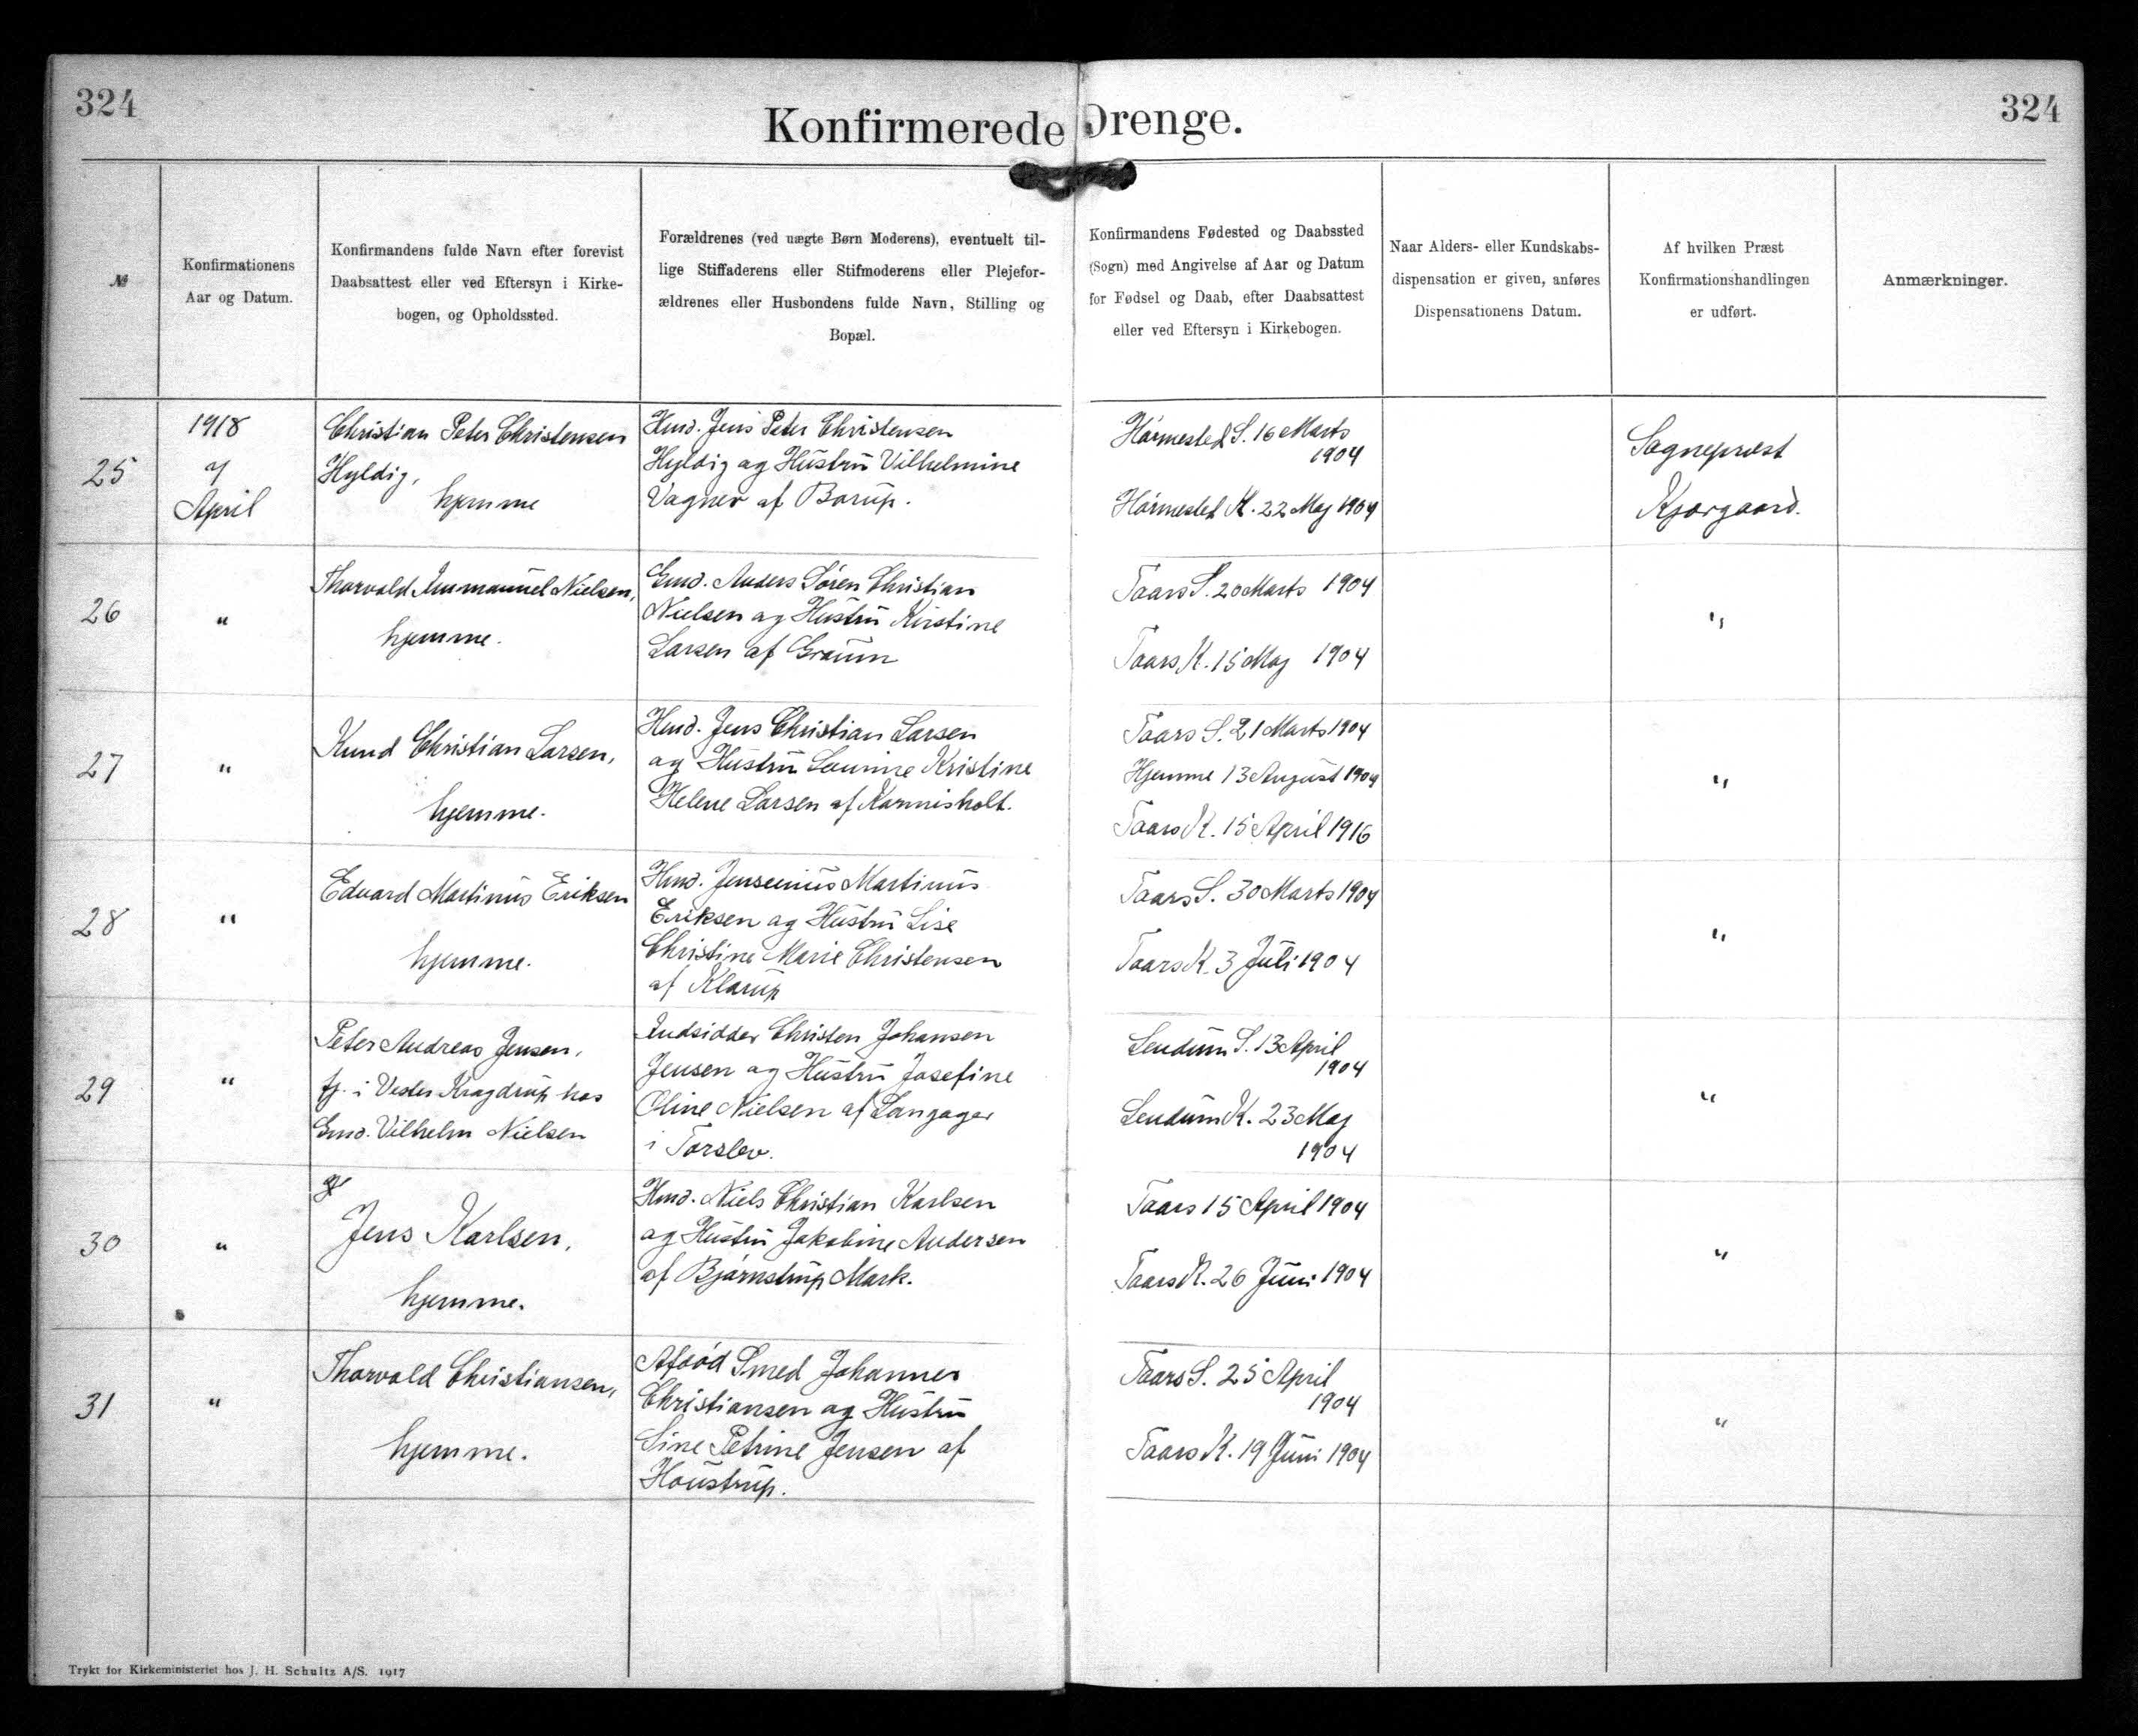 324
Konfirmerede Drenge.
324
№
Konfirmationens
Aar og Datum.
Konfirmandens fulde Navn efter forevist
Daabsattest eller ved Eftersyn i Kirke-
bogen, og Opholdssted.
Forældrenes (ved uægte Børn Moderens), eventuelt til-
lige Stiffaderens eller Stifmoderens eller Plejefor-
ældrenes eller Husbondens fulde Navn, Stilling og
Bopæl.
Konfirmandens Fødested og Daabssted
(Sogn) med Angivelse af Aar og Datum
for Fødsel og Daab, efter Daabsattest
eller ved Eftersyn i Kirkebogen.
Naar Alders- eller Kundskabs-
dispensation er given, anføres
Dispensationens Datum.
Af hvilken Præst
Konfirmationshandlingen
er udført.
Anmærkninger.
25
1918
7
April
Christian Peter Christensen
Hyldig,
hjemme
Hmd. Jens Peter Christensen
Hyldig og Hustru Vilhelmine
Vagner af Borup.
Hørmested S. 16 Marts
1904
Hørmested K. 22 Maj 1904
Sognepræst
Kjærgaard.
26
"
Thorvald Immanuel Nielsen,
hjemme.
Gmd. Anders Søren Christian
Nielsen og Hustru Kirstine
Larsen af Graum
Taars S. 20 Marts 1904
Taars K. 15 Maj 1904
"
27
"
Knud Christian Larsen,
hjemme.
Hmd. Jens Christian Larsen
og Hustru Kristine
Helene Larsen af Karmisholt.
Taars S. 21 Marts 1904
Hjemme 13 August 1904
Taars K. 15 April 1916
"
28
"
Edvard Martinus Eriksen
hjemme.
Hmd. Jensenius Martinus
Eriksen og Hustru Lise
Christine Marie Christensen
af Klarup
Taars S. 30 Marts 1904
Taars K. 3 Juli 1904
"
29
"
Peter Andreas Jensen,
tj. i Vester Kragdrup hos
Gmd. Vilhelm Nielsen
Indsidder Christen Johansen
Jensen og Hustru Josefine
Oline Nielsen af Langager
i Torslev.
Lendum S. 13 April
1904
Lendum K. 23 Maj
1904
"
30
"
Jens Karlsen,
hjemme.
Hmd. Niels Christian Karlsen
og Hustru Jakobine Andersen
af Bjørnstrup Mark.
Taars 15 April 1904
Taars K. 26 Juni 1904
"
31
"
Thorvald Christiansen,
hjemme.
Afdød Smed Johannes
Christiansen og Hustru
Sine Petrine Jensen af
Houstrup.
Taars S. 25 April
1904
Taars K. 19 Juni 1904
"
Trykt for Kirkeministeriet hos J. H. Schultz A/S. 1917